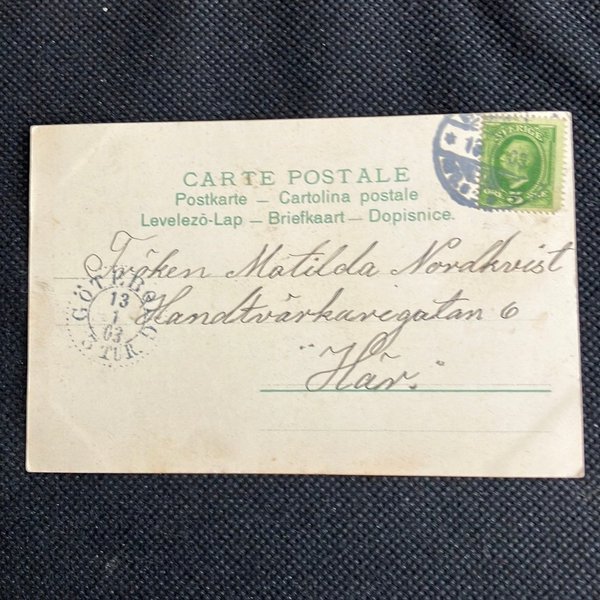 CARTE POSTALE
Postkarte — Cartolina postale
Levelező-Lap — Briefkaart — Dopisnice.
SVERIGE
5
Fröken Matilda Nordkvist
Handtvärkaregatan 6
"Här."
GÖTEBORG
13
1
03
3 TUR